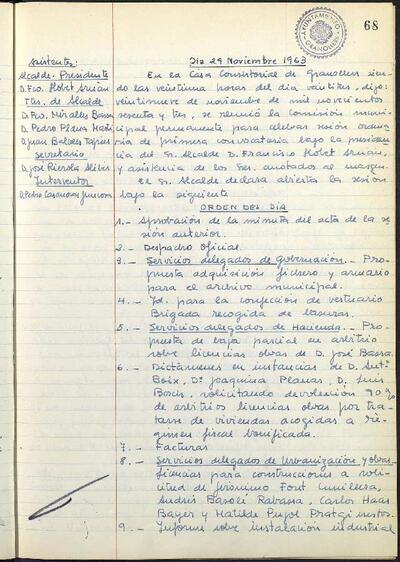 68
AYUNTAMIENTO
GRANOLLERS
Asistentes
Alcalde-Presidente
D. Fco. Llobet Arnan
Ttes. de Alcalde
D. Fco. Miralles Bassa
D. Pedro Planas
D. Juan
Secretario
D. José Rierola
Interventor
D. Pedro Casanovas Juncosa
Día 29 Noviembre 1963
En la Casa Consistorial de Granollers sien-
do las veintiuna horas del día veintitres, digo:
veintinueve de noviembre de mil novecientos
sesenta y tres, se reunió la Comisión muni-
cipal permanente para celebrar sesión ordina
ria de primera convocatoria bajo la presiden
cia del Sr. Alcalde D. Francisco Llobet Arnan,
y asistencia de los Sres. anotados al margen.
El Sr. Alcalde declara abierta la sesión
bajo la siguiente
ORDEN DEL DIA
1.- Aprobación de la minuta del acta de la se
sión anterior.
2.- Despacho oficial
3.- Servicios delegados de gobernación.- Pro
puesta adquisición fichero y armario
para el archivo municipal.
4.- Id. para la confección de vestuario
Brigada recogida de basuras.
5.- Servicios delegados de Hacienda.- Pro
puesta de baja parcial en arbitrio
sobre licencias obras de D. José Bassa.
6.- Dictámenes en instancias de D. Antº
Boix, Dª Joaquina Planas, D. Luis
solicitando devolución 90%
de arbitrios licencias obras por tra
tarse de viviendas acogidas a re-
gimen fiscal bonificado.
7.- Facturas
8.- Servicios delegados de Urbanización y obras.
Licencias para construcciones a soli-
citud de Jerónimo Font Cunillera,
Andrés Basoli Rabassa, Carlos Haas
Bayer y Matilde Pujol Pratginestos.
9.- Informe sobre instalación industrial